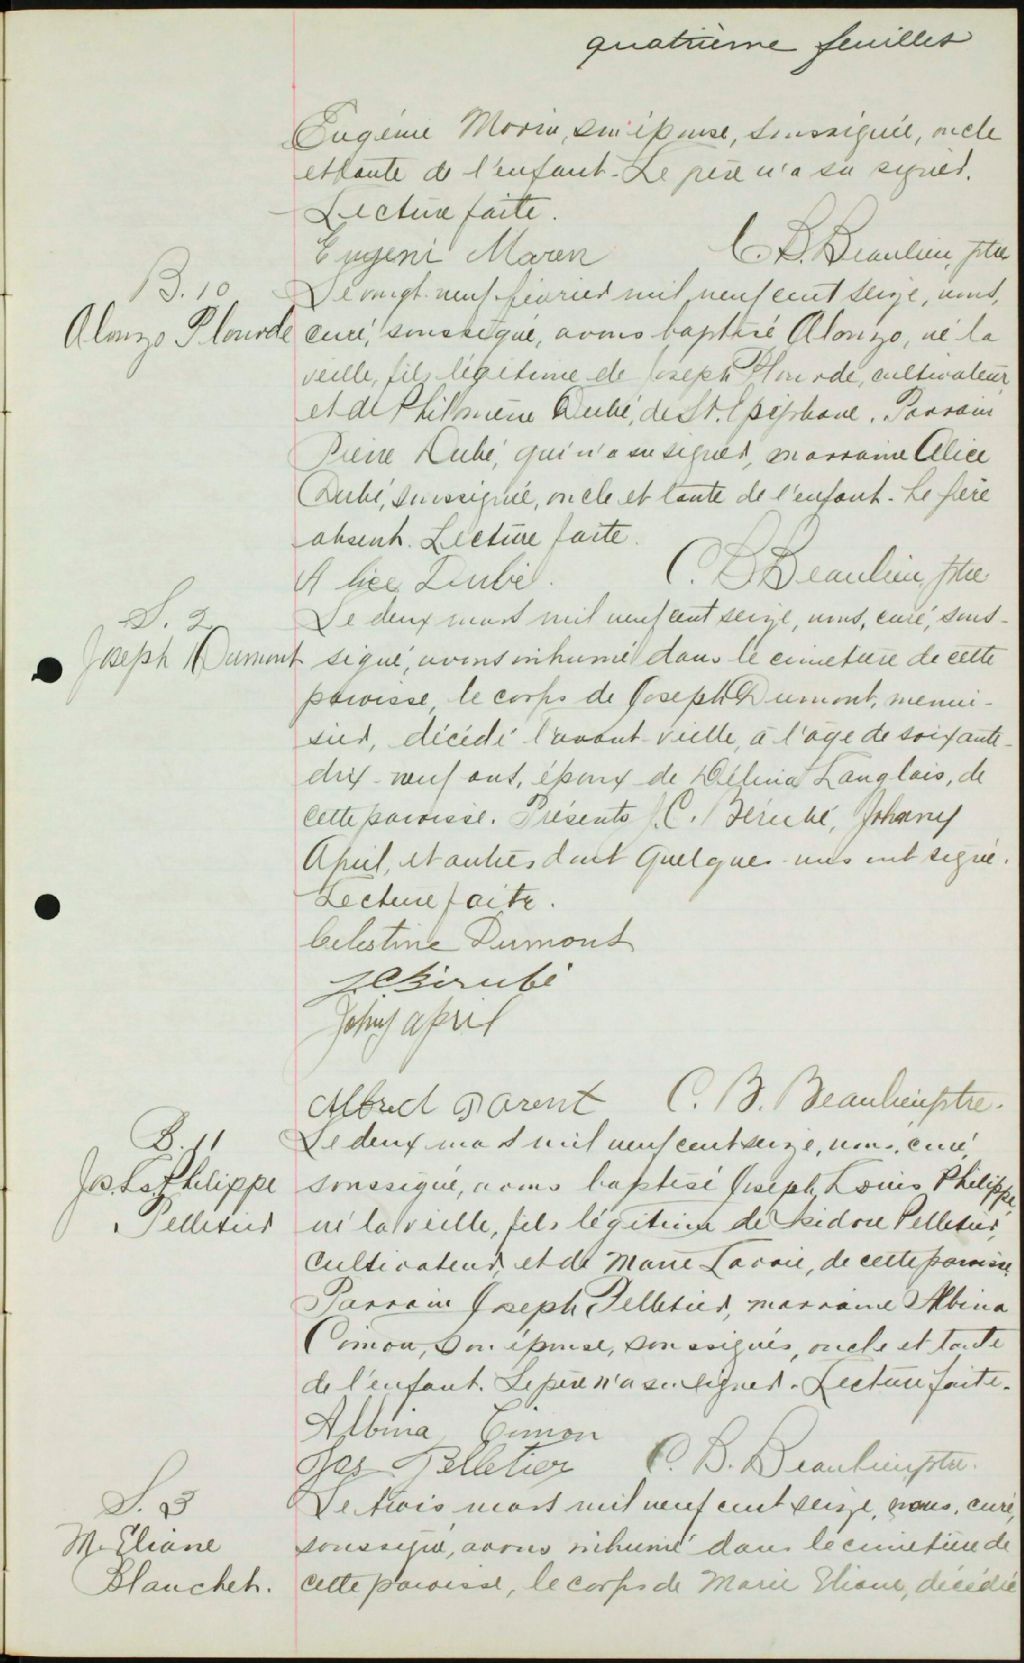 quatrième feuillet
Eugénie Morin, son épouse, soussignée, oncle
et tante de l'enfant. Le père n'a su signer.
Lecture faite.
Eugeni Maren C. B. Beaulieu, ptre
B. 10
Alonzo Plourde
Le vingt-neuf février mil neuf cent seize, nous,
curé, soussigné, avons baptisé Alonzo, né la
veille, fils légitime de Joseph Plourde, cultivateur,
et de Philomène Dubé, de St. Epiphane. Parrain
Pierre Dubé, qui n'a su signer, marraine Alice
Dubé, soussignée, oncle et tante de l'enfant. Le père
absent. Lecture faite.
Alice Dubé. C. B. Beaulieu, ptre
S. 2
Joseph Dumont
Le deux mars mil neuf cent seize, nous, curé, sous-
signé, avons inhumé dans le cimetière de cette
paroisse, le corps de Joseph Dumont, menui-
sier, décédé l'avant-veille, à l'âge de soixante-
dix-neuf ans, époux de Délina Langlais, de
cette paroisse. Présents J. C. Bérubé, Johnny
April, et autres dont quelques-uns ont signé.
Lecture faite.
Celestine Dumont
J. C. Bérubé
Johny april
Alfred Parent C. B. Beaulieu ptre.
B. 11
Jos. Ls. Philippe
Pelletier
Le deux mars mil neuf cent seize, nous, curé,
soussigné, avons baptisé Joseph Louis Philippe,
né la veille, fils légitime de Isidore Pelletier,
cultivateur, et de Marie Lavoie, de cette paroisse.
Parrain Joseph Pelletier, marraine Albina
Cimon, son épouse, soussignés, oncle et tante
de l'enfant. Le père n'a su signer. Lecture faite.
Albina Cimon
Jos Pelletier C. B. Beaulieu, ptre.
S. 3
M. Eliane
Blanchet.
Le trois mars mil neuf cent seize, nous, curé,
soussigné, avons inhumé dans le cimetière de
cette paroisse, le corps de Marie Eliane, décédée